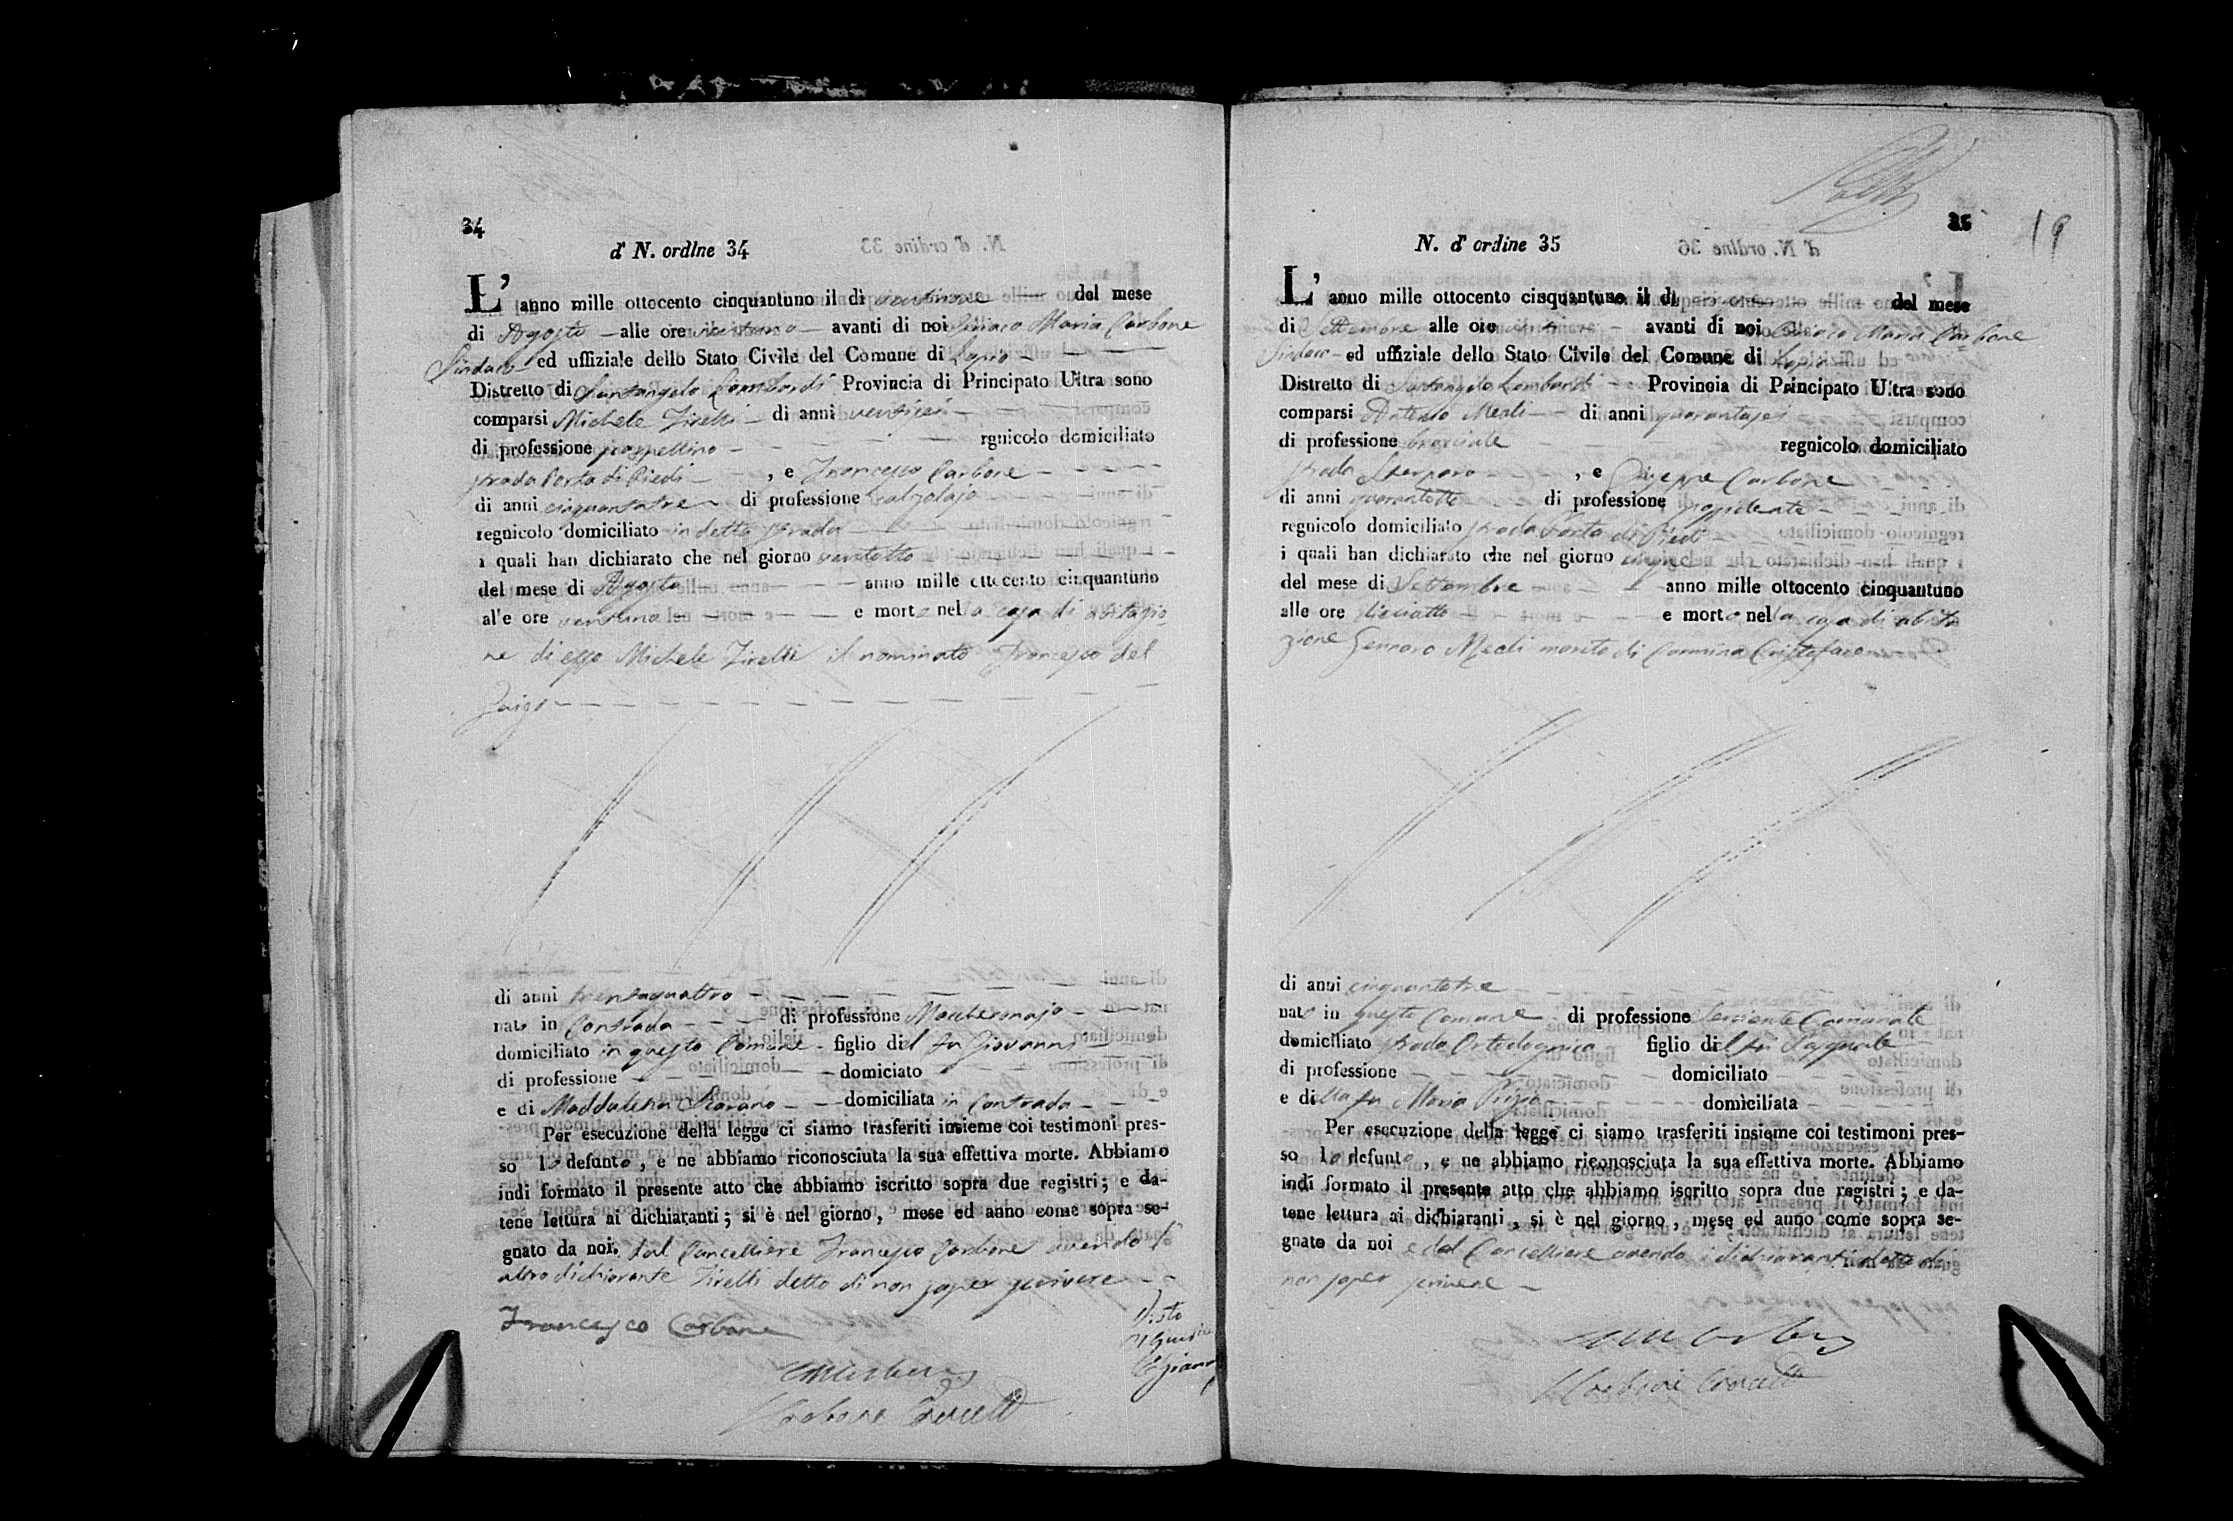 34
d' N. ordine 34
L' anno mille ottocento cinquantuno il dì ventinove del mese
di Agosto alle ore avanti di noi Ciriaco Maria Carbone
Sindaco ed uffiziale dello Stato Civile del Comune di Lapio
Distretto di Santangelo Lombardi Provincia di Principato Ultra sono
comparsi Michele Zirelli di anni ventisei
di professione scarpellino rgnicolo domiciliato
strada Porta di Piedi , e Francesco Carbone
di anni cinquantatre di professione calzolajo
regnicolo domiciliato in detta strada
i quali han dichiarato che nel giorno ventotto
del mese di Agosto anno mille ottocento cinquantuno
al'e ore ventuno e morto nella casa di abitazio
ne di esso Michele Zirelli il nominato Francesco del
Gaizo
di anni trentaquattro
nato in Contrada di professione Maccheronajo
domiciliato in questo Comune figlio del fu Giovanni
di professione domiciato
e di Maddalena Scarano domiciliata in Contrada
Per esecuzione della legge ci siamo trasferiti insieme coi testimoni pres-
so lo defunto , e ne abbiamo riconosciuta la sua effettiva morte. Abbiamo
indi formato il presente atto che abbiamo iscritto sopra due registri ; e da-
tene lettura ai dichiaranti ; si è nel giorno , mese ed anno come sopra se-
gnato da noi, dal Cancelliere Francesco Carbone avendo l'
altro dichiarante Zirelli detto di non saper scrivere
Francesco Carbone
Visto
Carbone Cancell
35
19
N. d' ordine 35
L' anno mille ottocento cinquantuno il dì del mese
di Settembre alle ore avanti di noi Ciriaco Maria Carbone
Sindaco ed uffiziale dello Stato Civile del Comune di Lapio
Distretto di Santangelo Lombardi Provincia di Principato Ultra sono
comparsi Antonio Meoli di anni quarantasei
di professione bracciale regnicolo domiciliato
strada , e Giuseppe Carbone
di anni quarantotto di professione possidente
regnicolo domiciliato strada Porta di Piedi
i quali han dichiarato che nel giorno cinque
del mese di Settembre anno mille ottocento cinquantuno
alle ore diciotto e morto nella casa di abita
zione Gennaro Meoli marito di Carmina Cristofaro
di anni cinquantatre
nato in questo Comune di professione Serviente Comunale
domiciliato strada figlio del fu Pasquale
di professione domiciliato
e della fu Maria domiciliata
Per esecuzione della legge ci siamo trasferiti insieme coi testimoni pres-
so lo defunto , e ne abbiamo riconosciuta la sua effettiva morte. Abbiamo
indi formato il presente atto che abbiamo iscritto sopra due registri ; e da-
tene lettura ai dichiaranti , si è nel giorno , mese ed anno come sopra se-
gnato da noi e dal Cancelliere avendo i dichiaranti detto di
non saper scrivere
Carbone Cancell